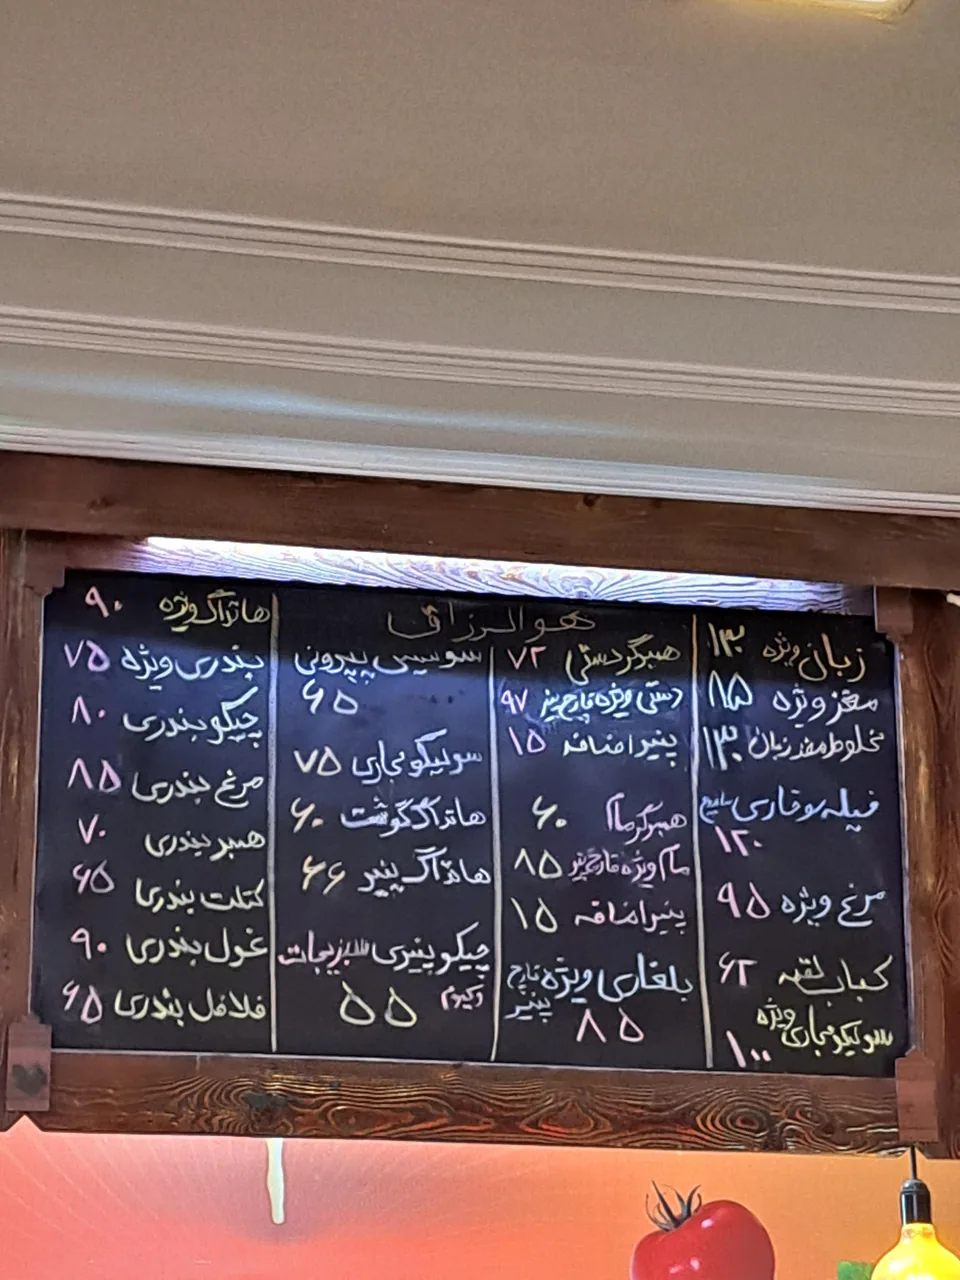 هو الرزاق
زبان ویژه ۱۳۰
مغز ویژه ۱۱۵
مخلوط مغز زبان ۱۳۰
فیله سوخاری
۱۲۰
مرغ ویژه ۹۵
کباب لقمه ۶۲
سوسیکو مجاری ویژه
۱۰۰
همبرگر دستی ۷۲
دستی ویژه قارچ پنیر ۹۷
پنیر اضافه ۱۵
همبرگر مام ۶۰
مام ویژه قارچ پنیر ۸۵
پنیر اضافه ۱۵
بلغاری ویژه قارچ
پنیر
۸۵
سوسیس پپرونی
۶۵
سوسیکو مجاری ۷۵
هات داگ گوشت ۶۰
هات داگ پنیر ۶۶
چیکو پنیری سبزیجات
وکیوم ۵۵
هات داگ ویژه ۹۰
بندری ویژه ۷۵
چیکو بندری ۸۰
مرغ بندری ۸۵
همبر بندری ۷۰
کتلت بندری ۶۵
غول بندری ۹۰
فلافل بندری ۶۵